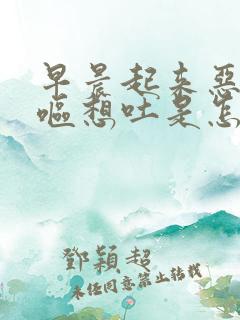 早晨起来惡
嘔想吐是怎
鄧穎超
未経同意禁止转载